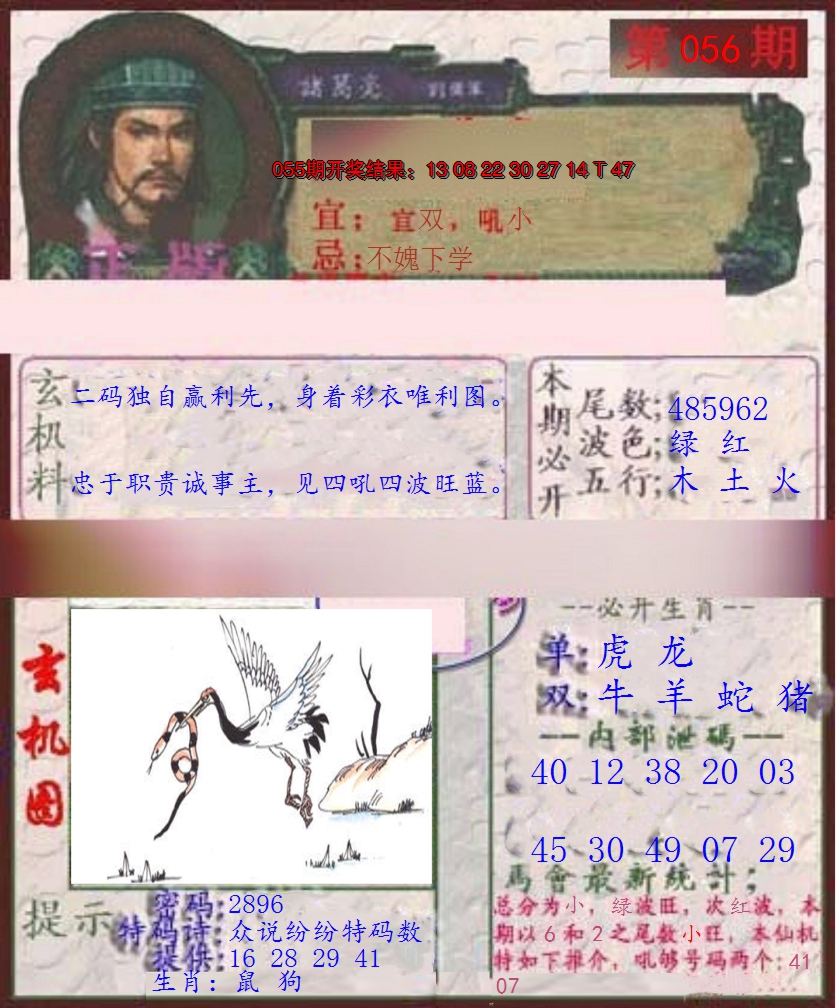 第 056 期
諸葛亮 劉備軍
055期开奖结果：13 08 22 30 27 14 T 47
宜：宜双，吼小
忌：不媿下学
正版
玄机料
二码独自赢利先，身着彩衣唯利图。
忠于职贵诚事主，见四吼四波旺蓝。
本期必开
尾数;485962
波色;绿 红
五行;木 土 火
玄机图
--必开生肖--
单: 虎 龙
双: 牛 羊 蛇 猪
—内部泄碼—
40 12 38 20 03
45 30 49 07 29
提示
密码:2896
特码诗:众说纷纷特码数
提供:16 28 29 41
生肖：鼠 狗
馬會最新統計;
总分为小，绿波旺，次红波，本
期以6和2之尾数小旺，本仙机
特如下推介，吼够号码两个:41
07